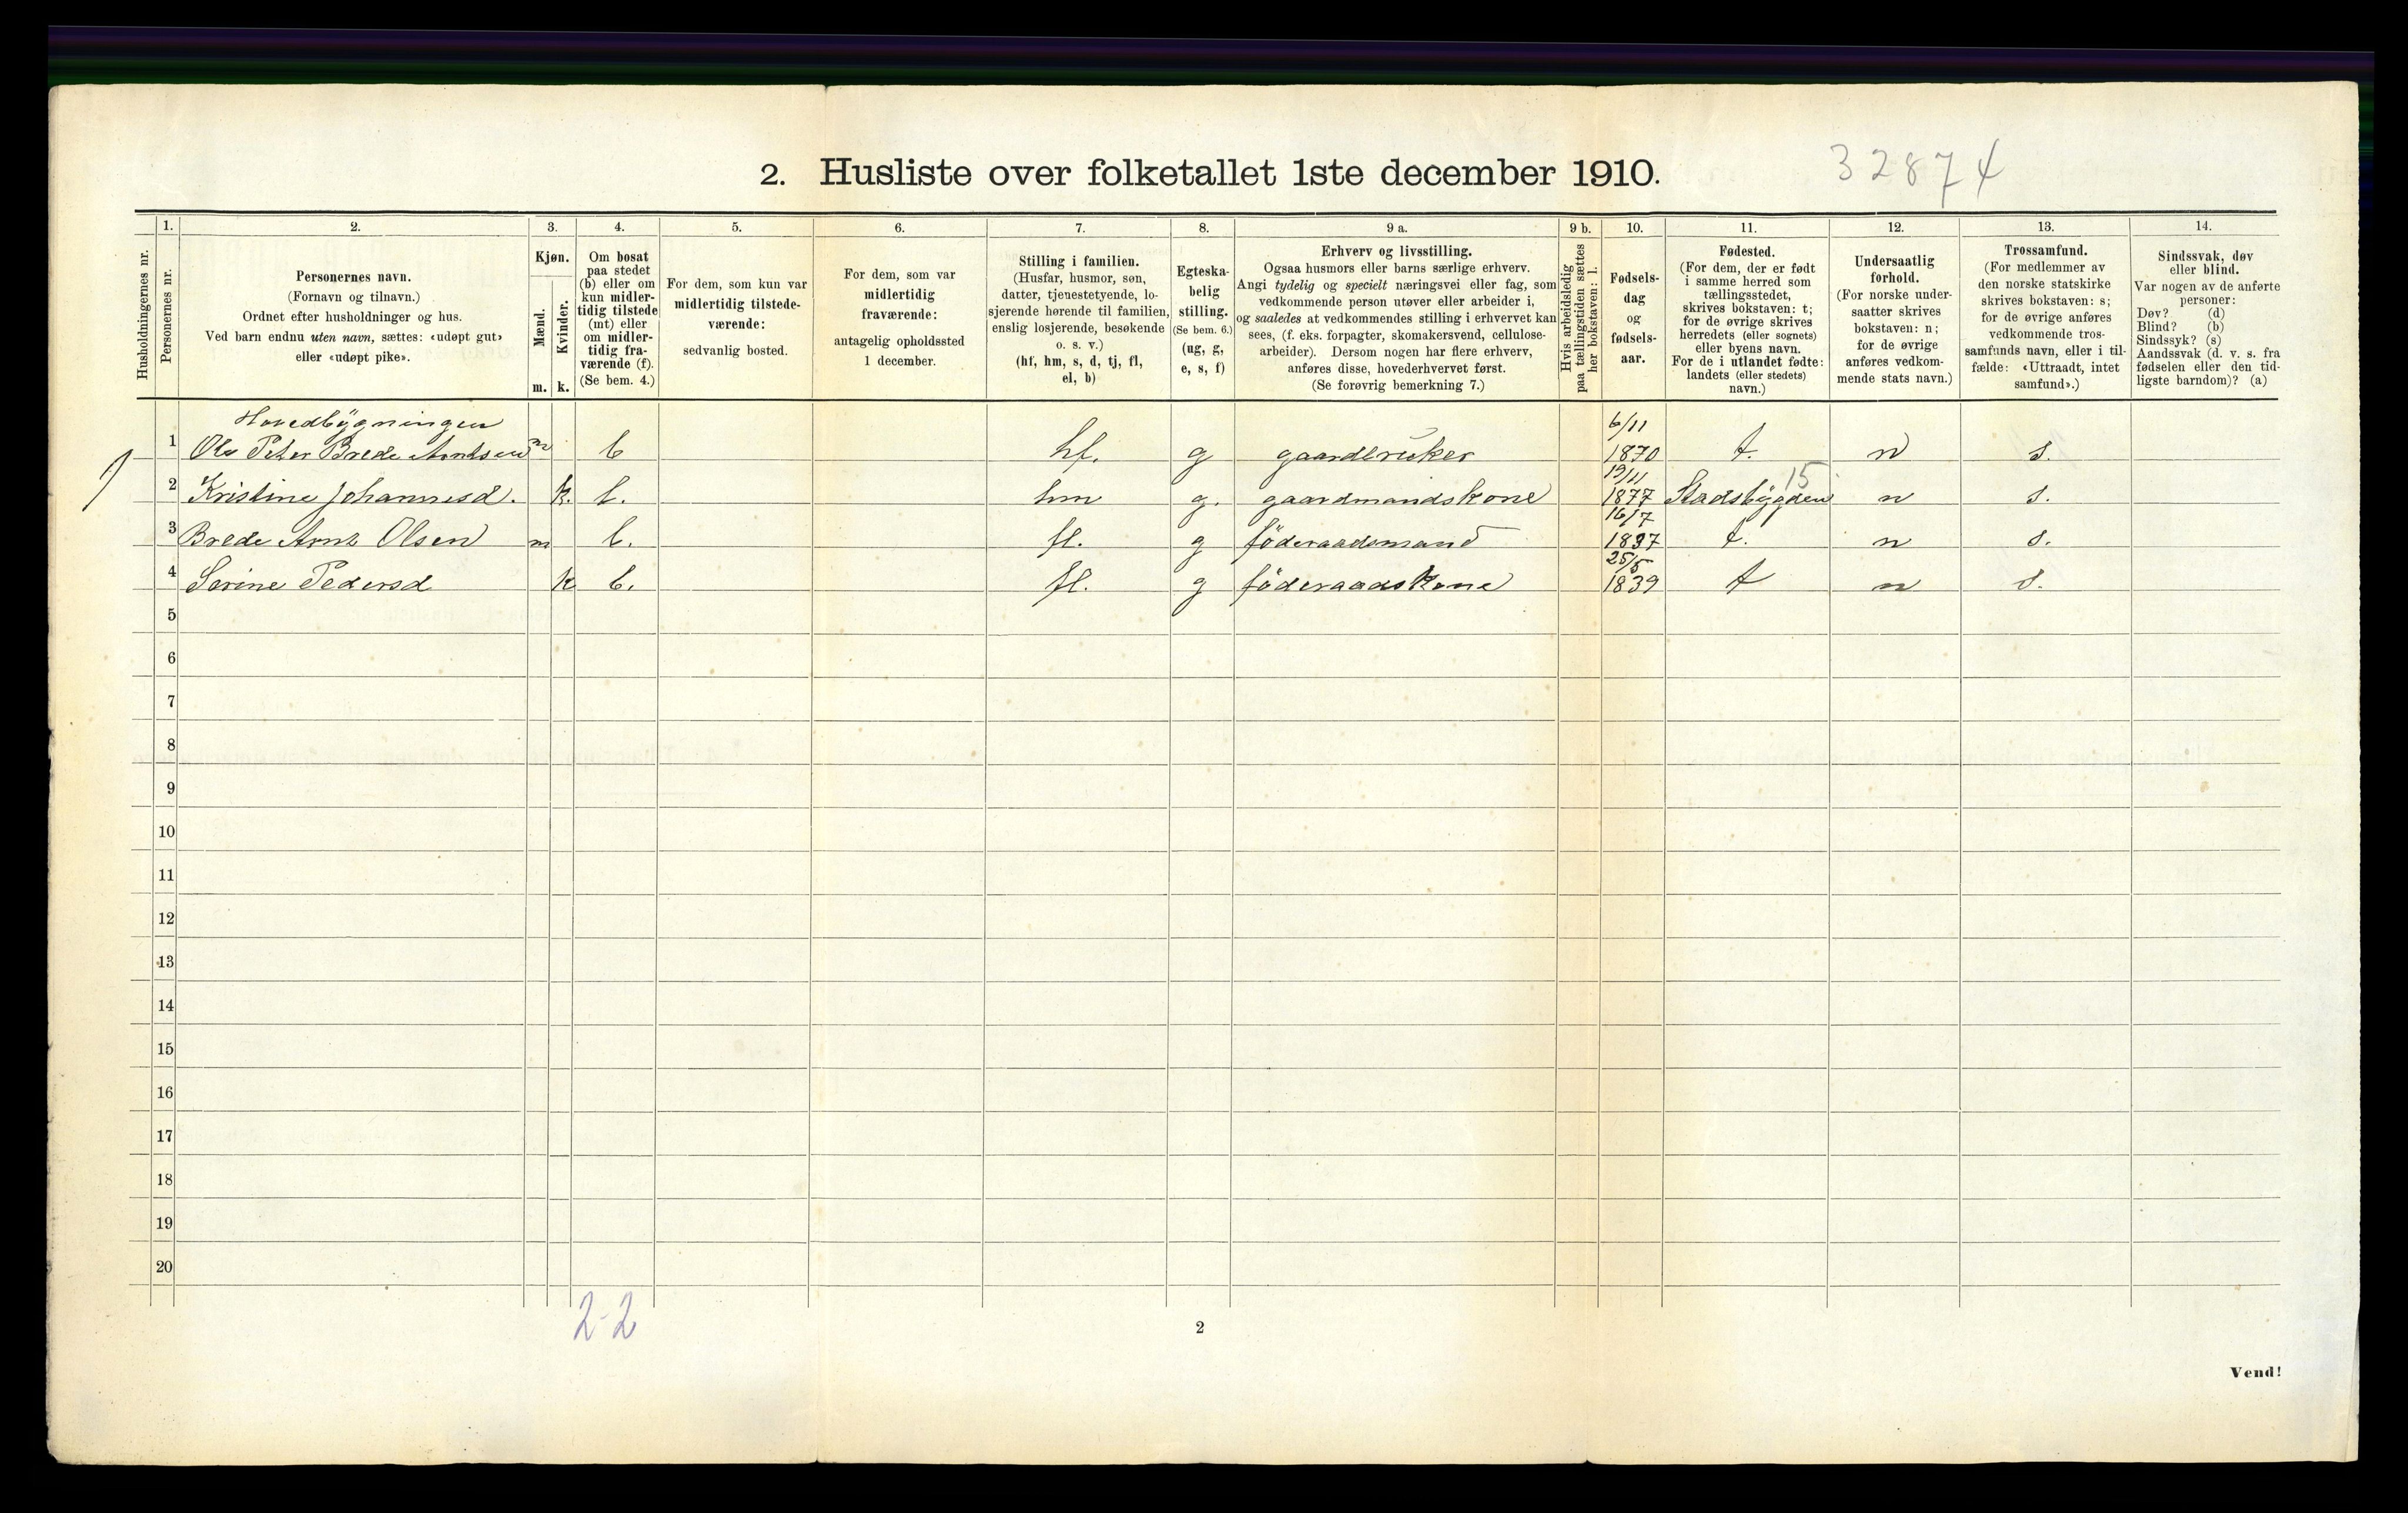 2. Husliste over folketallet 1ste december 1910.
32874
Husholdningernes nr.
1.
Personernes nr.
2.
Personernes navn.
(Fornavn og tilnavn.)
Ordnet efter husholdninger og hus.
Ved barn endnu uten navn, sættes: «udøpt gut»
eller «udøpt pike».
3.
Kjøn.
Mænd.
Kvinder.
m. k.
4.
Om bosat
paa stedet
(b) eller om
kun midler-
tidig tilstede
(mt) eller
om midler-
tidig fra-
værende (f).
(Se bem. 4.)
5.
For dem, som kun var
midlertidig tilstede-
værende:
sedvanlig bosted.
6.
For dem, som var
midlertidig
fraværende:
antagelig opholdssted
1 december.
7.
Stilling i familien.
(Husfar, husmor, søn,
datter, tjenestetyende, lo-
sjerende hørende til familien,
enslig losjerende, besøkende
o. s. v.)
(hf, hm, s, d, tj, fl,
el, b)
8.
Egteska-
belig
stilling.
(Se bem. 6.)
(ug, g,
e, s, f)
9 a.
Erhverv og livsstilling.
Ogsaa husmors eller barns særlige erhverv.
Angi tydelig og specielt næringsvei eller fag, som
vedkommende person utøver eller arbeider i,
og saaledes at vedkommendes stilling i erhvervet kan
sees, (f. eks. forpagter, skomakersvend, cellulose-
arbeider). Dersom nogen har flere erhverv,
anføres disse, hovederhvervet først.
(Se forøvrig bemerkning 7.)
9 b.
Hvis arbeidsledig
paa tællingstiden sættes
her bokstaven: l.
10.
Fødsels-
dag
og
fødsels-
aar.
11.
Fødested.
(For dem, der er født
i samme herred som
tællingsstedet,
skrives bokstaven: t;
for de øvrige skrives
herredets (eller sognets)
eller byens navn.
For de i utlandet fødte:
landets (eller stedets)
navn.)
12.
Undersaatlig
forhold.
(For norske under-
saatter skrives
bokstaven: n;
for de øvrige
anføres vedkom-
mende stats navn.)
13.
Trossamfund.
(For medlemmer av
den norske statskirke
skrives bokstaven: s;
for de øvrige anføres
vedkommende tros-
samfunds navn, eller i til-
fælde: «Uttraadt, intet
samfund».)
14.
Sindssvak, døv
eller blind.
Var nogen av de anførte
personer:
Døv? (d)
Blind? (b)
Sindssyk? (s)
Aandssvak (d. v. s. fra
fødselen eller den tid-
ligste barndom)? (a)
Hovedbygningen
6/11
1 Ole Peter Brede Arntsen m b hf. g gaardbruker 1870 t. n s.
19/11 15
2 Kristine Johannesd. k. b. hm g. gaardmandskone 1877 Stadsbygden n s.
16/7
3 Brede Arnt Olsen m b. fl. g föderaadsmand 1837 t. n s.
25/5
4 Serine Pedersd k b. fl. g föderaadskone 1839 t n s.
5
6
7
8
9
10
11
12
13
14
15
16
17
18
19
20
2-2
2
Vend!